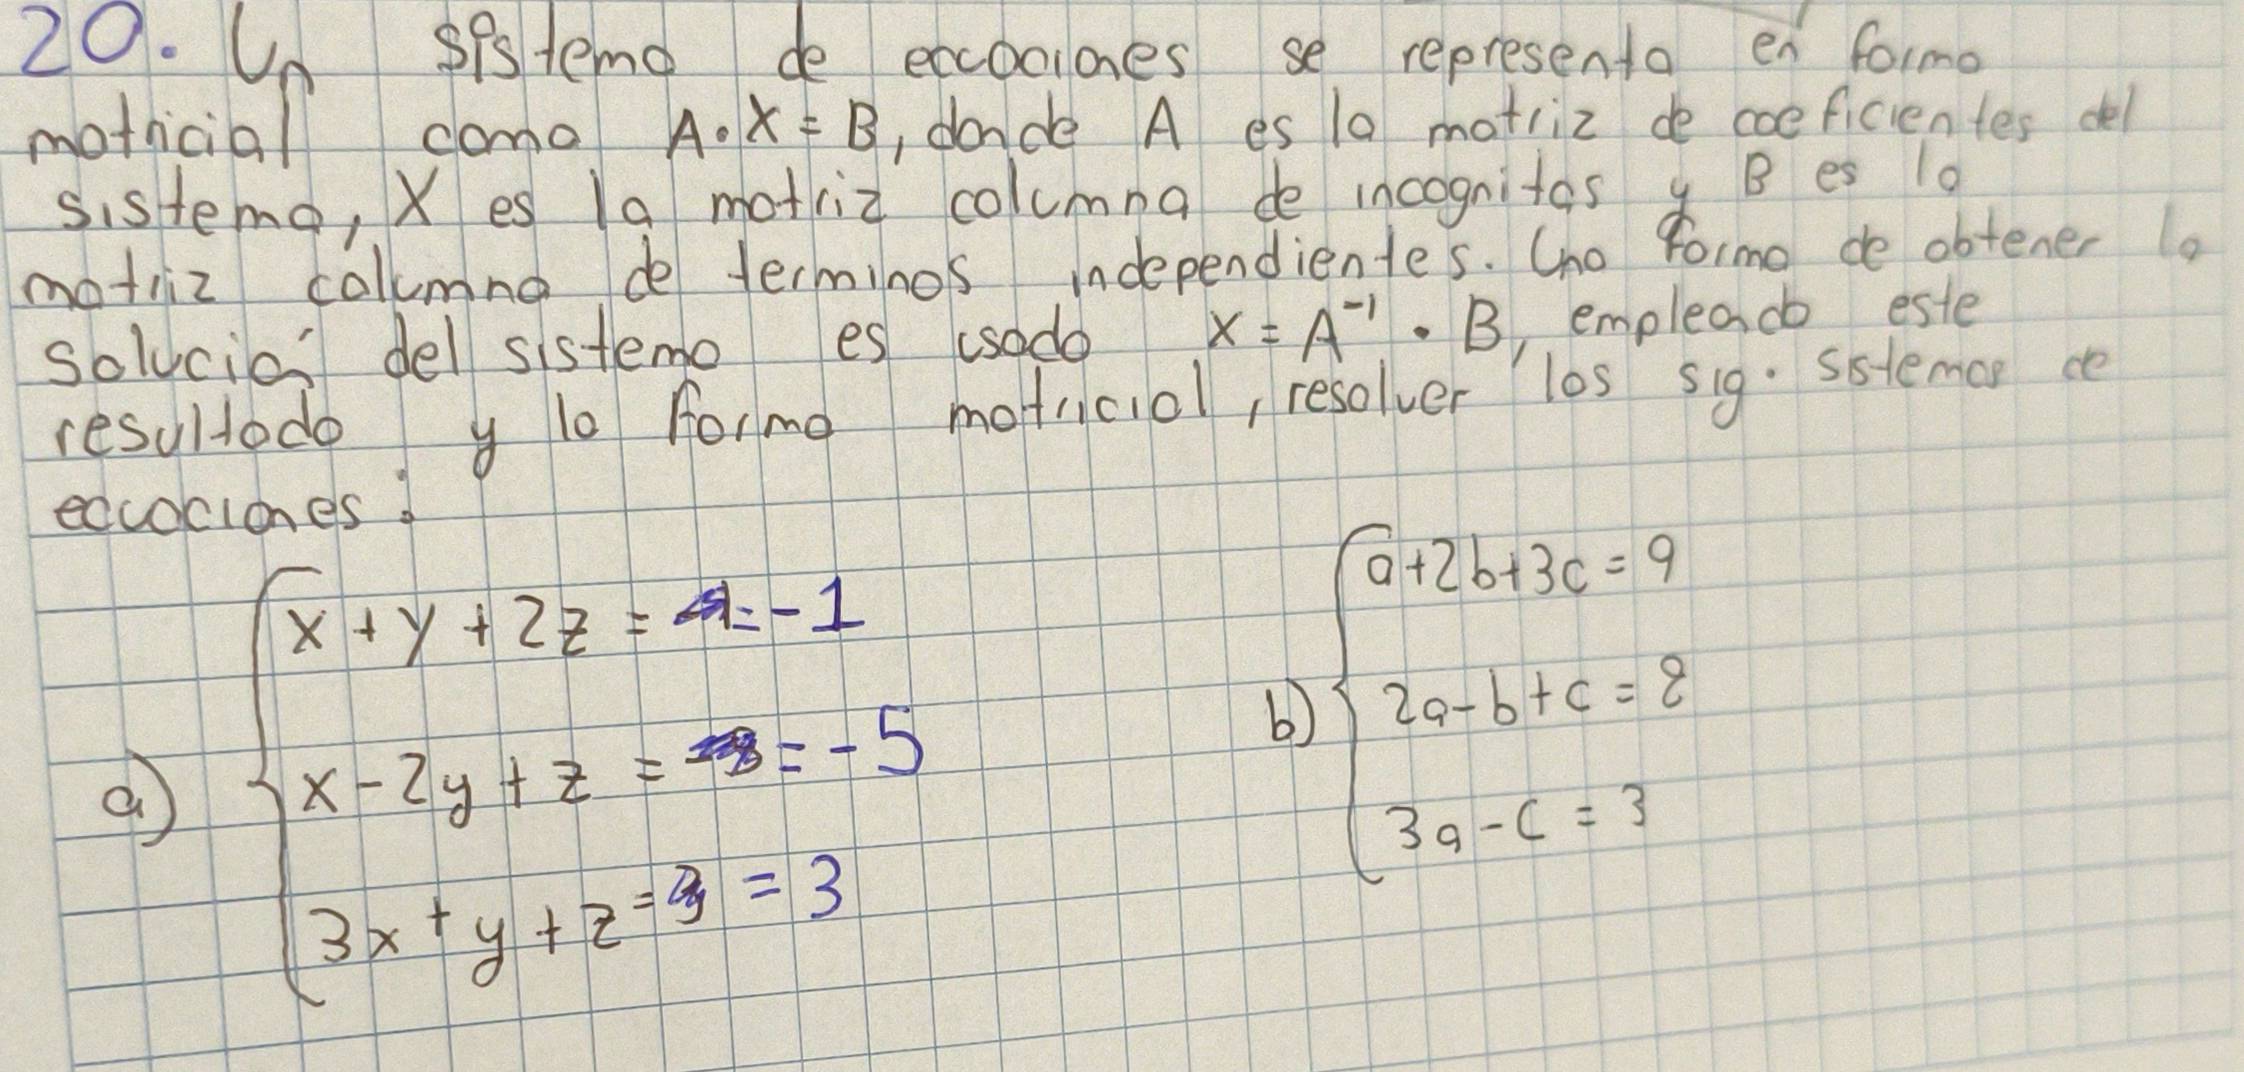 20. Un sistema de ecuaciones se representa en forma
matricial como A·X=B, donde A es la matriz de coeficientes del
sistema, X es la matriz columna de incognitas y B es la
matriz columna de terminos independientes. Una forma de obtener la
solución del sistema es usado X=A⁻¹·B, empleado este
resultado y la forma matricial, resolver los sig. sistemas de
ecuaciones:
a) { x+y+2z = = -1
x-2y+z = = -5
3x+y+z = = 3
b) { a+2b+3c=9
2a-b+c=8
3a-c=3